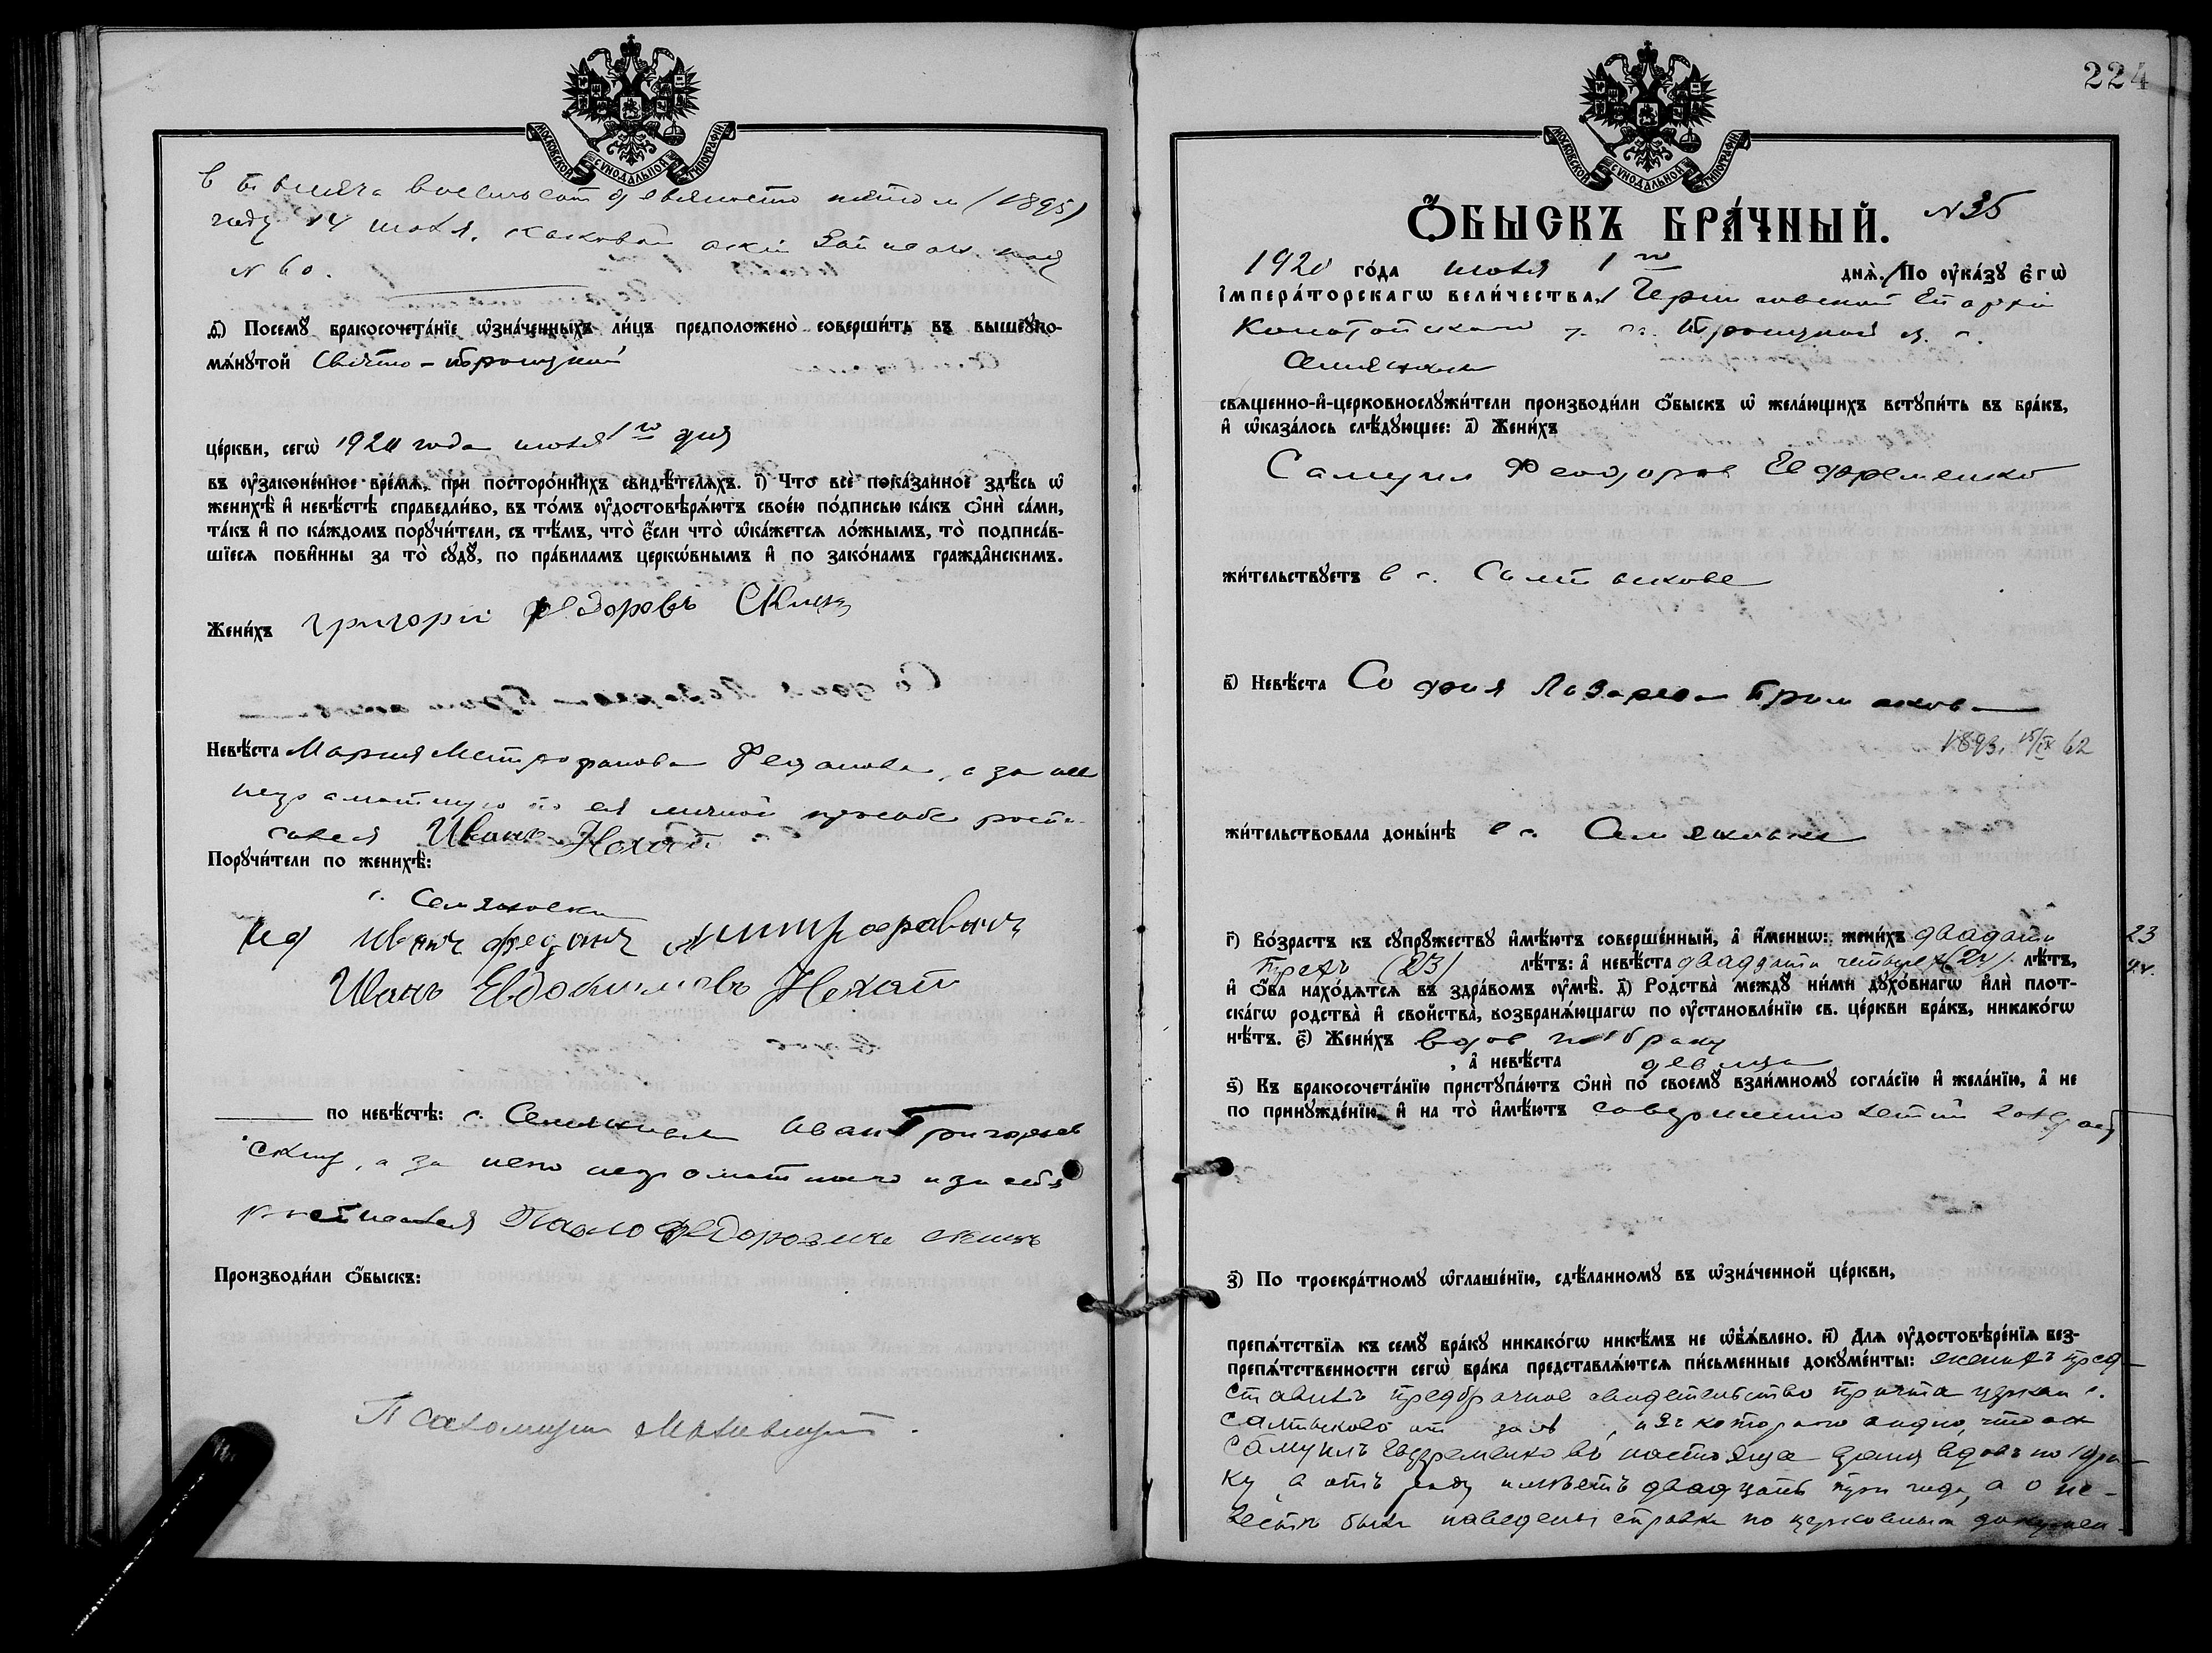 МОСКОВСКОЙ СѴНОДАЛЬНОЙ ТИПОГРАФІИ
в тысяча восемьсот девяносто пятом (1895)
году 14 июля, каковой акт записан под
N 60.
д҃і) Посемꙋ̀ бракосочета́нїе ѡ҆зна́ченныхъ ли́цъ предположено̀ соверши́ть въ вышеꙋпо-
мѧ́нꙋтой Свято-Троицкой
це́ркви, сегѡ̀ 1920 года июля 1го дня
въ ᲂу҆зако́ненное вре́мѧ, при посторо́ннихъ свидѣ́телѧхъ. і҃) Что̀ всѐ пока́занное здѣ́сь ѡ҆
женихѣ̀ и҆ невѣ́стѣ справедли́во, въ то́мъ ᲂу҆достовѣрѧ́ютъ свое́ю по́дписью ка́къ ѻ҆нѝ са́ми,
та́къ и҆ по ка́ждомъ порꙋчи́тели, съ тѣ́мъ, что̀ є҆́сли что̀ ѡ҆ка́жетсѧ ло́жнымъ, то̀ подписа́в-
шїесѧ пови́нны за то̀ сꙋдꙋ̀, по пра́виламъ церкѡ́внымъ и҆ по зако́намъ гражда́нскимъ.
Жени́хъ Григорій Федоровъ
Невѣ́ста Мария Митрофанова , а за нее
неграмотную по ея личной просьбе роспи-
сался Иванъ Нехай
Порꙋчи́тели по женихѣ̀:
с. Семяновки
Иванъ Евдокимовъ Нехай
по невѣ́стѣ: с. Семяновки Иван Григорьев
, а за него неграмотного и за себя
росписался Павло Федоровичъ
Производи́ли ѻ҆́быскъ:
Псаломщик
224
МОСКОВСКОЙ СѴНОДАЛЬНОЙ ТИПОГРАФІИ
Ѻ҆́БЫСКЪ БРА́ЧНЫЙ. N 35
1920 го́да июля 1го днѧ̀. По ᲂу҆ка́зꙋ є҆гѡ̀
і҆мпера́торскагѡ вели́чества, Черниговской Епархіи
Конотопского у. с. Троицкой ц. с.
Семяновки
свѧще́нно-и҆-церковнослꙋжи́тели производи́ли ѻ҆́быскъ ѡ҆ жела́ющихъ встꙋпи́ть въ бра́къ,
и҆ ѡ҆каза́лось слѣ́дꙋющее: а҃) Жени́хъ
Самуил Феодоров Евфременко
жи́тельствꙋетъ в с. Салтыкове
в҃) Невѣ́ста София Лазарева
1893. 15/IX 62
жи́тельствовала доны́нѣ в с. Семяновке
г҃) Во́зрастъ къ сꙋпрꙋ́жествꙋ и҆мѣ́ютъ соверше́нный, а҆ и҆́меннѡ: жени́хъ двадцати 23
трехъ (23) лѣ́тъ: а҆ невѣ́ста двадцати четырех (24) лѣ́тъ,
и҆ ѻ҆́ба нахо́дѧтсѧ въ здра́вомъ ᲂу҆мѣ̀. д҃) Родства̀ ме́ждꙋ ни́ми дꙋхо́внагѡ и҆лѝ плот-
ска́гѡ родства̀ и҆ сво́йства, возбранѧ́ющагѡ по ᲂу҆становле́нїю св. це́ркви бра́къ, никако́гѡ
нѣ́тъ. є҃) Жени́хъ вдов по 1 браку
, а҆ невѣ́ста девица
ѕ҃) Къ бракосочета́нїю пристꙋпа́ютъ ѻ҆нѝ по своемꙋ̀ взаи́мномꙋ согла́сїю и҆ жела́нїю, а҆ не
по принꙋжде́нїю, и҆ на то̀ и҆мѣ́ютъ
з҃) По троекра́тномꙋ ѡ҆глаше́нїю, сдѣ́ланномꙋ въ ѡ҆зна́ченной це́ркви,
препѧ́тствїѧ къ семꙋ̀ бра́кꙋ никако́гѡ никѣ́мъ не ѡ҆б̾ѧ́влено. и҃) Длѧ ᲂу҆достовѣре́нїѧ без-
препѧ́тственности сегѡ̀ бра́ка представлѧ́ютсѧ пи́сьменные докꙋме́нты: женихъ пред-
ставилъ предбрачное свидетельство причта церкви с.
Салтыково , изъ которого видно, что он
Самуилъ Евфременко въ настояще время вдовъ по 1 бра-
ку, а отъ роду имѣетъ двадцать три года, а о не-
весте были наведены справки по церковным докумен-